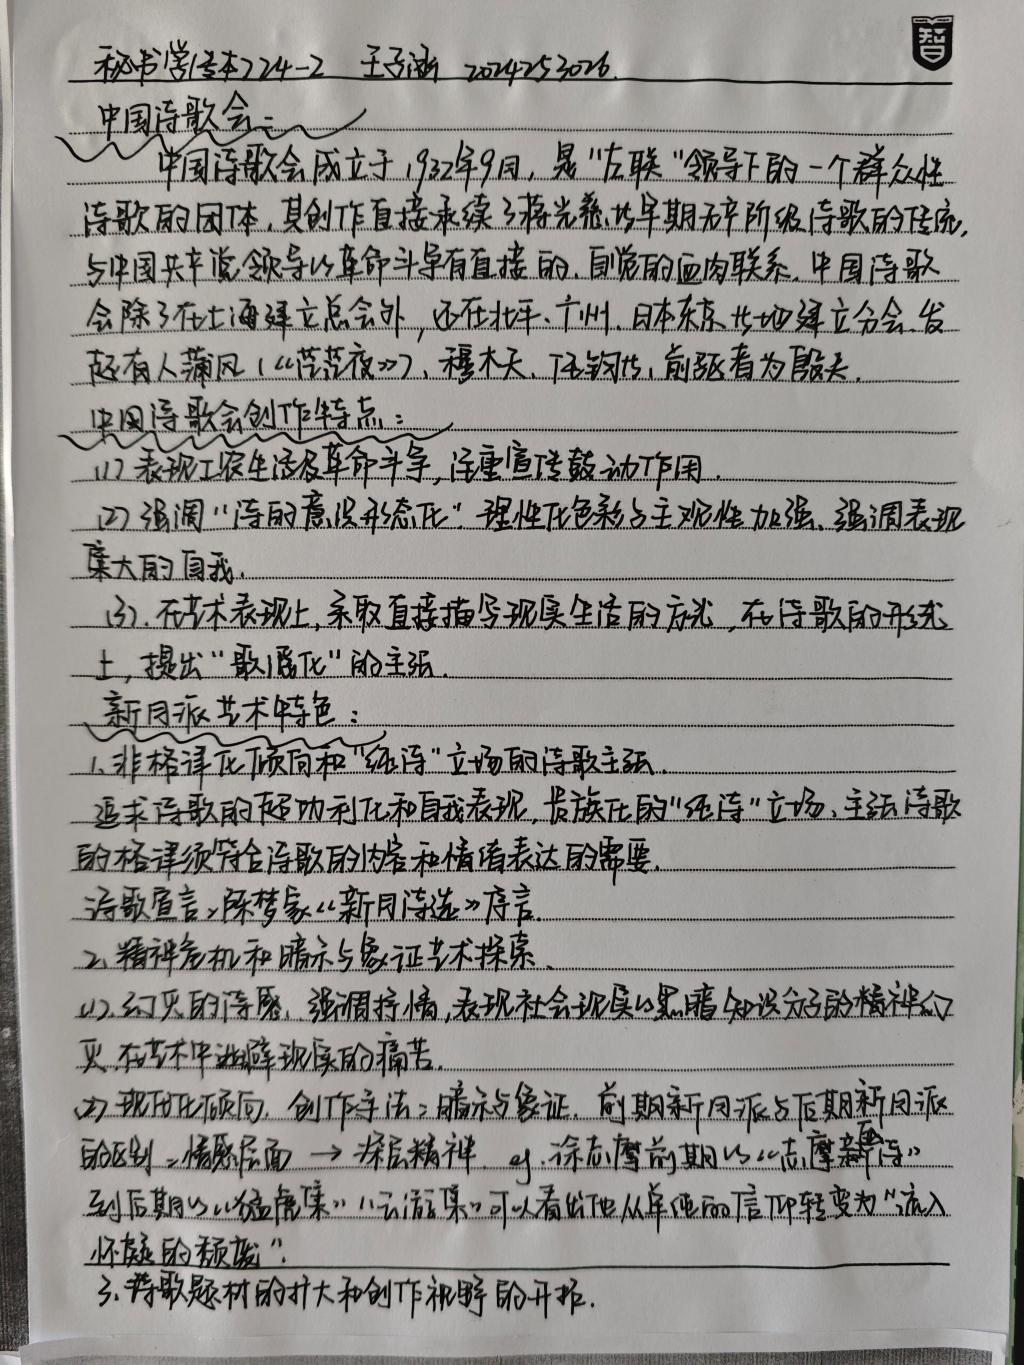 智
秘书学(专本)24-2 王子涵 2024253026.
中国诗歌会:
中国诗歌会成立于1932年9月,是"左联"领导下的一个群众性
诗歌的团体,其创作直接承续了蒋光慈等早期无产阶级诗歌的传统,
与中国共产党领导的革命斗争有直接的、自觉的血肉联系.中国诗歌
会除了在上海建立总会外,还在北平、广州、日本东京等地建立分会.发
起有人蒲风(《茫茫夜》)、穆木天、任钧等,前驱者为殷夫.
中国诗歌会创作特点:
(1)表现工农生活及革命斗争,注重宣传鼓动作用.
(2)强调"诗的意识形态化"理性化色彩与主观性加强、强调表现
集大的自我.
(3).在艺术表现上,采取直接描写现实生活的方式,在诗歌的形式
上,提出"歌谣化"的主张.
新月派艺术特色:
1.非格律化倾向和"纯诗"立场的诗歌主张.
追求诗歌的超功利化和自我表现,贵族化的"纯诗"立场、主张诗歌
的格律须符合诗歌的内容和情绪表达的需要.
诗歌宣言>陈梦家《新月诗选》序言.
2.精神危机和暗示与象征艺术探索.
(1).幻灭的诗感、强调抒情,表现社会现实的黑暗知识分子的精神幻
灭.在艺术中逃避现实的痛苦.
(2)现代化倾向.创作手法:暗示与象征.前期新月派与后期新月派
的区别:情感层面→深层精神.eg.徐志摩前期的《志摩的诗》
到后期的《猛虎集》《云游集》可以看出他从单纯的信仰转变为"流入
怀疑的颓废".
3.诗歌题材的扩大和创作视野的开拓.